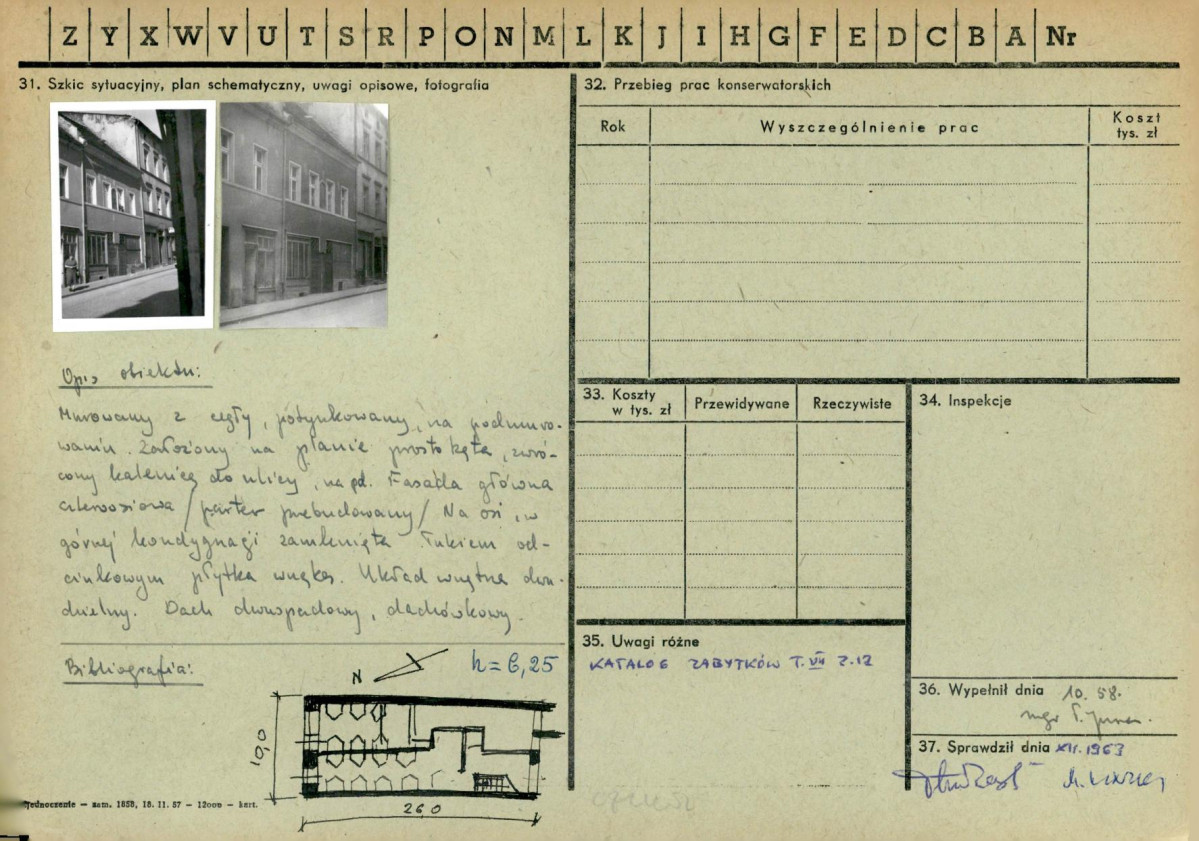 Z Y X W V U T S R P O N M L K J I H G F E D C B A Nr
31. Szkic sytuacyjny, plan schematyczny, uwagi opisowe, fotografia
Opis obiektu:
Murowany z cegły, potynkowany, na podmuro-
waniu. Założony na planie prostokąta, zwró-
cony kalenicą do ulicy, na pd. Fasada główna
czteroosiowa /parter przebudowany/ Na osi, w
górnej kondygnacji zamknięta łukiem od-
cinkowym płytka wnęka. Układ wnętrza dwu-
dzielny. Dach dwuspadowy, dachówkowy.
Bibliografia:
N
h = 6,25
10,0
26,0
Jednoczenie — zam. 1858, 18. 11. 57 — 12000 — kart.
32. Przebieg prac konserwatorskich
Rok
Wyszczególnienie prac
Koszt
tys. zł
33. Koszty
w tys. zł
Przewidywane
Rzeczywiste
34. Inspekcje
35. Uwagi różne
KATALOG ZABYTKÓW T. VII Z. 12
36. Wypełnił dnia 10. 58.
mgr T.
37. Sprawdził dnia XII. 1963